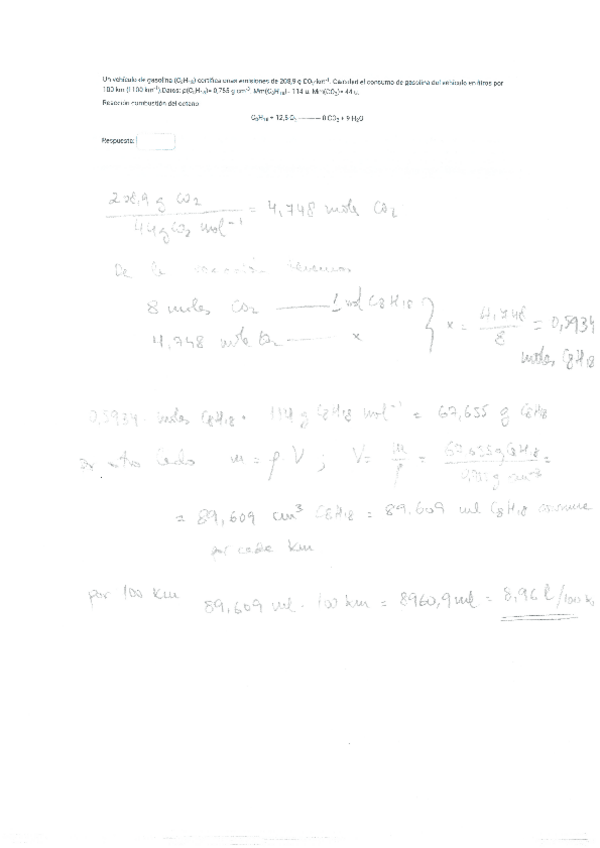 Un vehículo de gasolina (C₈H₁₈) certifica unas emisiones de 208,9 g CO₂·km⁻¹. Calcular el consumo de gasolina del vehículo en litros por
100 km (l 100 km⁻¹) Datos: ρ(C₈H₁₈)= 0,755 g cm⁻³. Mm(C₈H₁₈)= 114 u. Mm(CO₂)= 44 u.
Reacción combustión del octano
C₈H₁₈ + 12,5 O₂ ——— 8 CO₂ + 9 H₂O
Respuesta:
208,9 g CO₂ / 44 g CO₂ mol⁻¹ = 4,748 mole CO₂
De la reacción tenemos
8 moles CO₂ —— 1 mol C8H18
4,748 mole CO₂ —— x } x = 4,748 / 8 = 0,5934
moles C8H18
0,5934 moles C8H18 · 114 g C8H18 mol⁻¹ = 67,655 g C8H18
otro lado m = ρ·V ; V = m/ρ = 67,655 g C8H18 / g cm⁻³ =
= 89,609 cm³ C8H18 = 89,609 ml C8H18 consume
por cada km
por 100 km 89,609 ml · 100 km = 8960,9 ml = 8,96 l/100 k